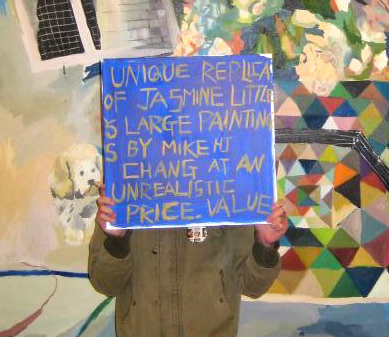 UNIQUE REPLICA
OF JASMINE LITTLE
S LARGE PAINTING
S BY MIKE HJ
CHANG AT AN
UNREALISTIC
PRICE. VALUE